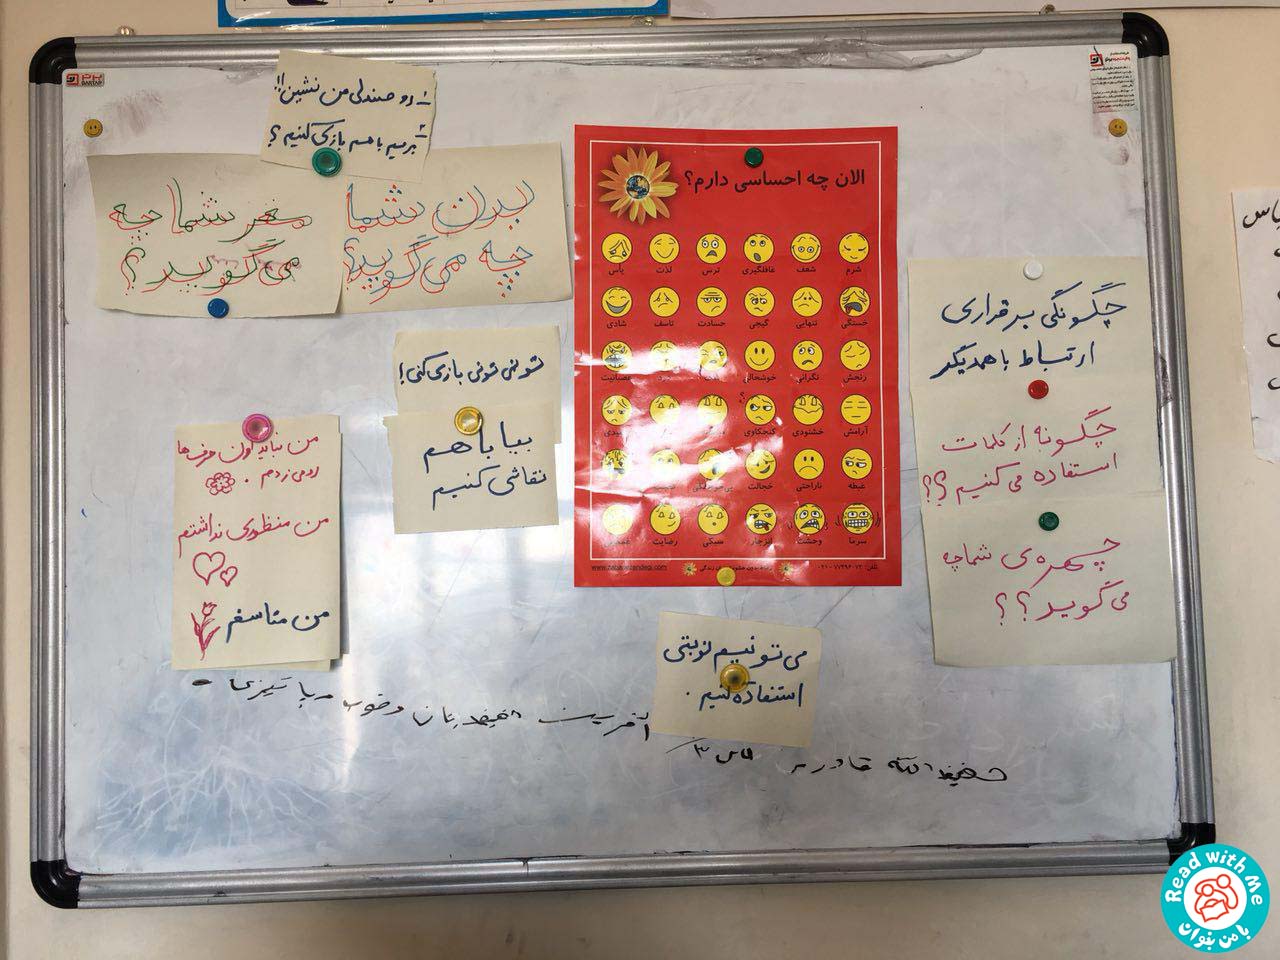 برتر
BARTAR
۱- رو صندلی من نشین!!
۲- بریم با هم بازی کنیم؟
بدن شما
چه می‌گوید؟
مغز شما چه
می‌گوید؟
الان چه احساسی دارم؟
شرم
شعف
غافلگیری
ترس
لذت
یأس
خستگی
تنهایی
گیجی
حسادت
تاسف
شادی
رنجش
نگرانی
خوشحالی
عصبانیت
آرامش
خشنودی
کنجکاوی
غبطه
ناراحتی
خجالت
سرما
وحشت
انزجار
سبکی
رضایت
تلفن: ۷۷۴۹۶۰۷۳-۰۲۱
زندگی
چگونگی برقراری
ارتباط با همدیگر
چگونه از کلمات
استفاده می کنیم؟؟
چهره‌ی شما چه
می گوید؟؟
بیا با هم
نقاشی کنیم
من نباید اون حرف‌ها
رو می زدم.
من منظوری نداشتم
من متاسفم
می تونیم نوبتی
استفاده کنیم.
حفیظ الله قادری
آفرین
Read with Me
با من بخوان